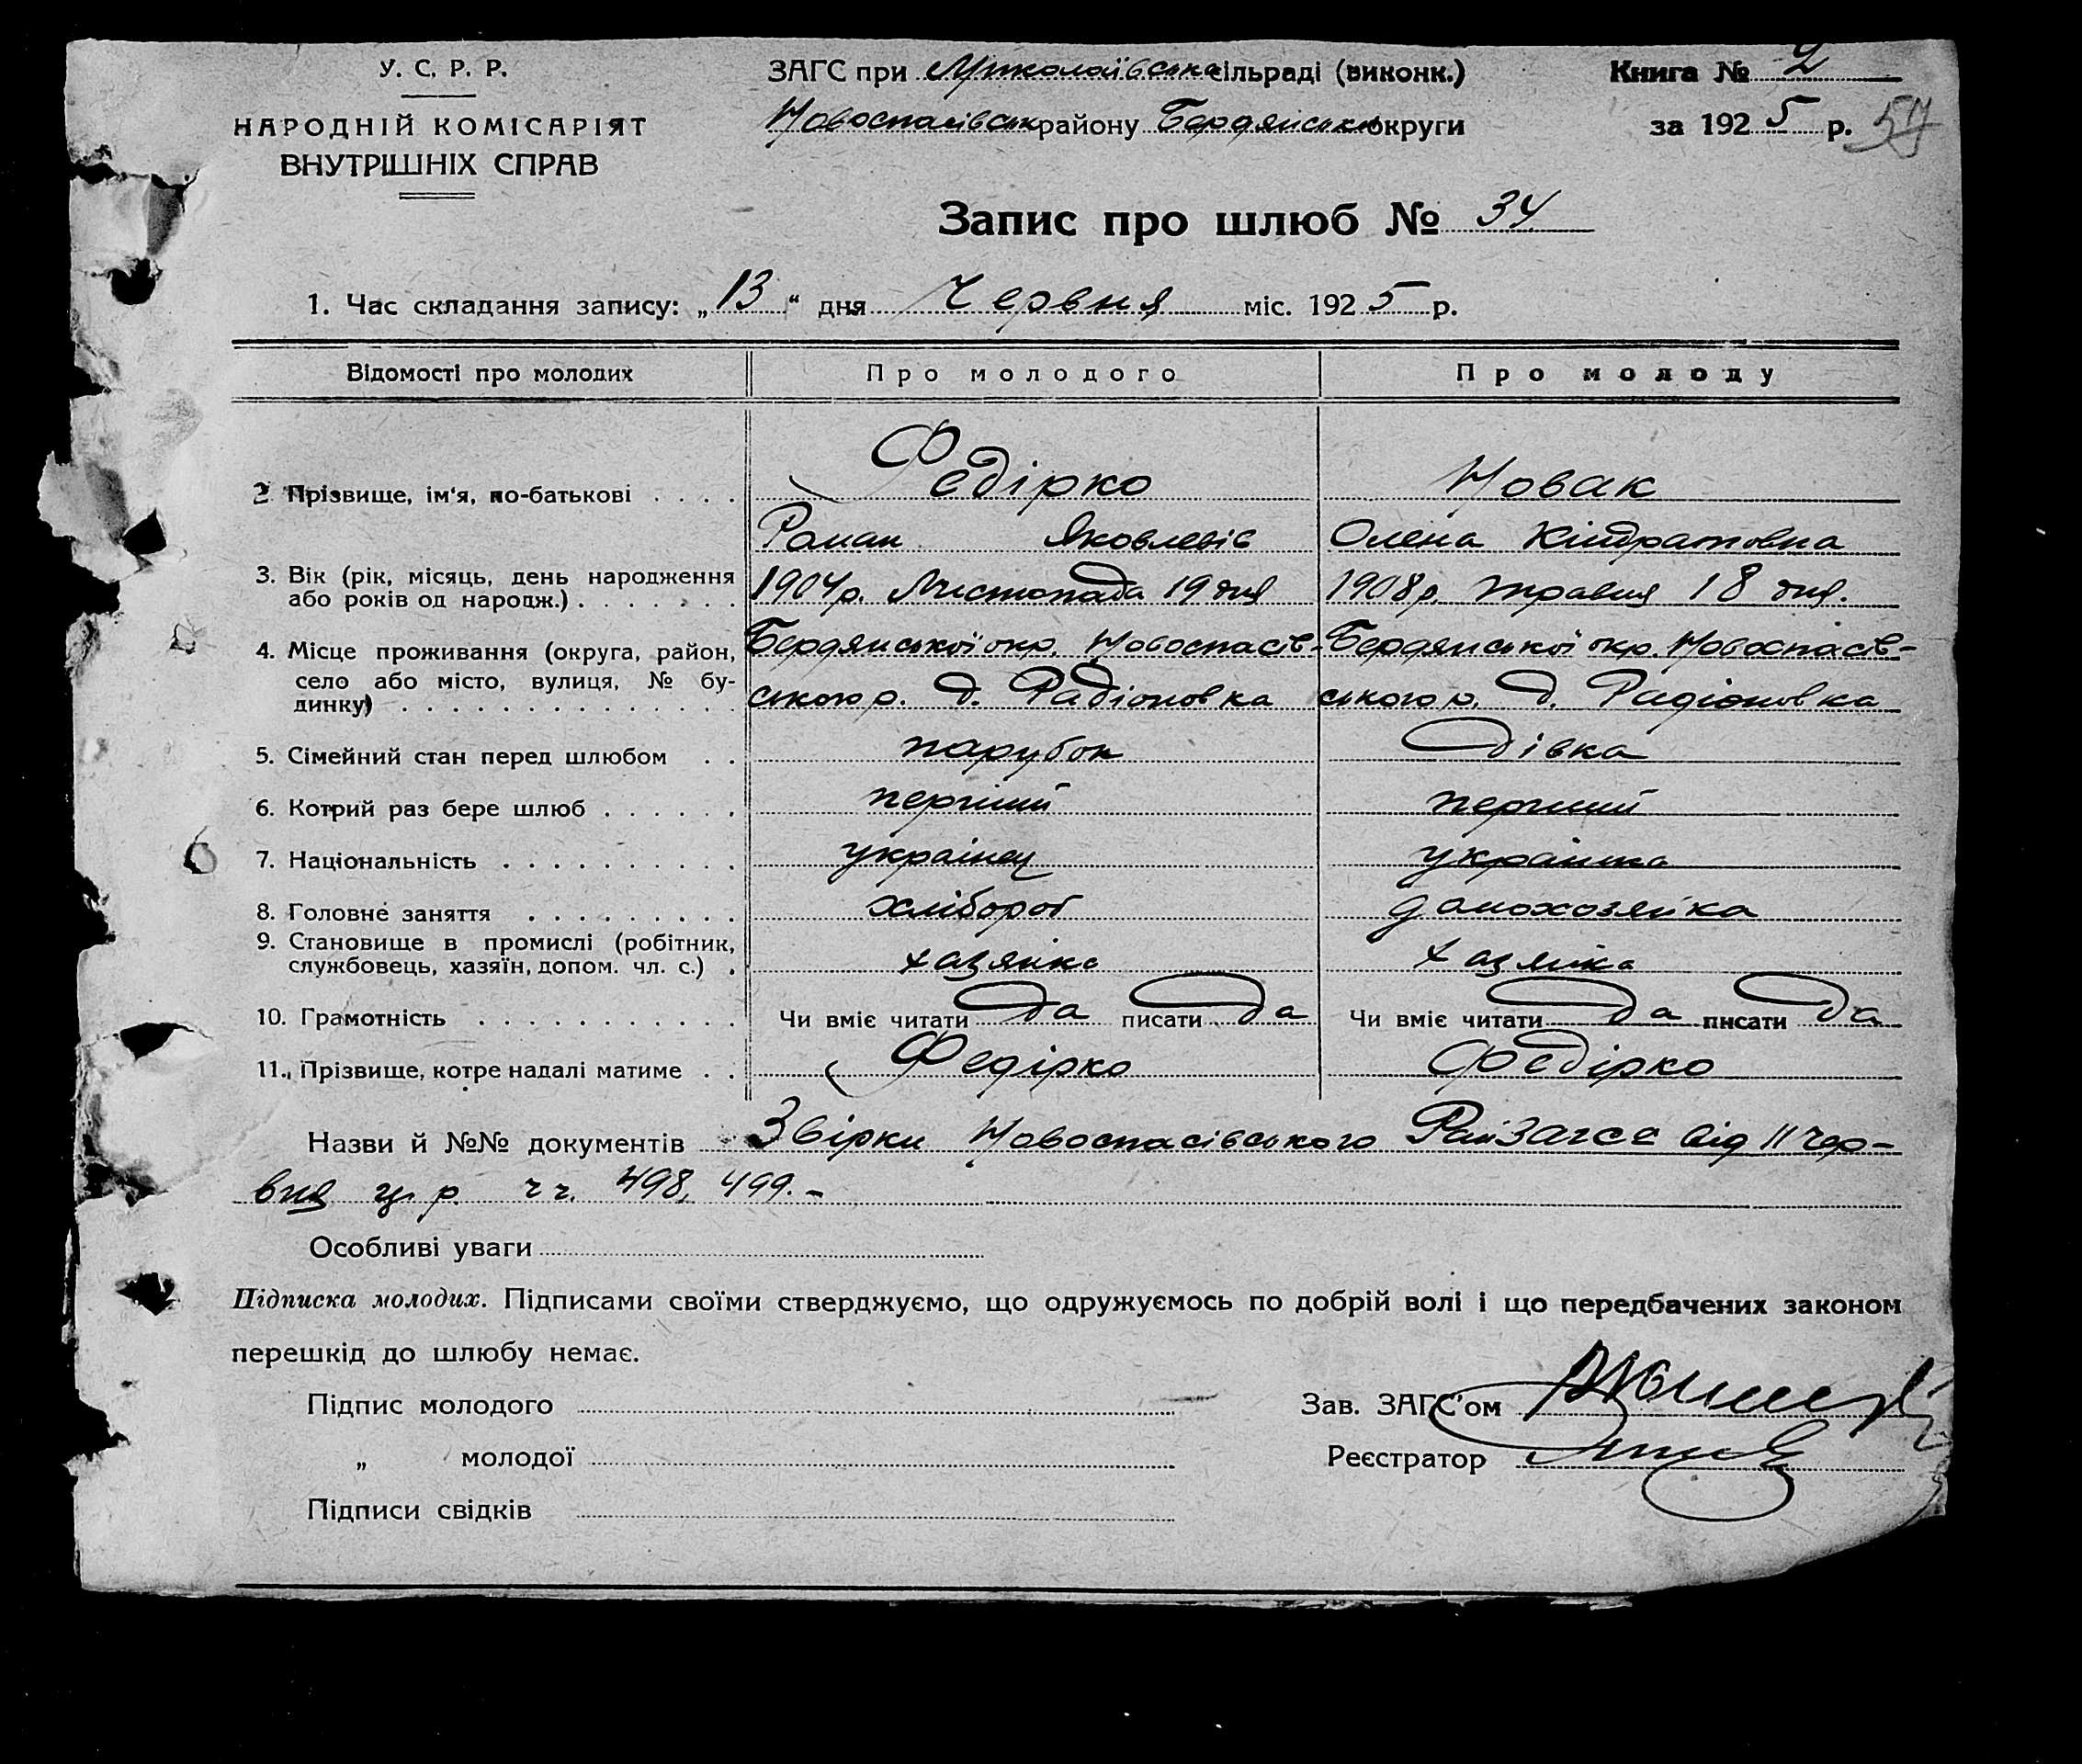 У. С. Р. Р.
НАРОДНІЙ КОМІСАРІЯТ
ВНУТРІШНІХ СПРАВ
ЗАГС при Миколаївська сільраді (виконк.)
Новоспасівськ району Бердянськ округи
Книга № 2
за 1925 р. 57
Запис про шлюб № 34
1. Час складання запису: „13“ дня Червня міс. 1925 р.
Відомості про молодих Про молодого Про молоду
2. Прізвище, ім'я, по-батькові . . . . Федірко Новак
Роман Яковлевіс Олена Кіндратовна
3. Вік (рік, місяць, день народження
або років од народж.) . . . . . . . 1904р. Листопада 19 дня 1908р. травня 18 дня.
4. Місце проживання (округа, район, Бердянської окр. Новоспасів- Бердянської окр. Новоспасів-
село або місто, вулиця, № бу-
динку) . . . . . . . . . . . . . . ського р. д. Радіоновка ського р. д. Радіоновка
5. Сімейний стан перед шлюбом . . парубок дівка
6. Котрий раз бере шлюб . . . . . . перший перший
7. Національність . . . . . . . . . . українец українка
8. Головне заняття . . . . . . . . . хлібороб домохозяйка
9. Становище в промислі (робітник,
службовець, хазяїн, допом. чл. с.) . хазяїн хазяйка
10. Грамотність . . . . . . . . . . . Чи вміє читати да писати да Чи вміє читати да писати да
11. Прізвище, котре надалі матиме . . Федірко Федірко
Назви й №№ документів Звірки Новоспасівського РайЗагсс від 11 чер-
вня ц. р. чч. 498, 499.-
Особливі уваги
Підписка молодих. Підписами своїми стверджуємо, що одружуємось по добрій волі і що передбачених законом
перешкід до шлюбу немає.
Підпис молодого
Зав. ЗАГС'ом
„ молодої
Реєстратор
Підписи свідків